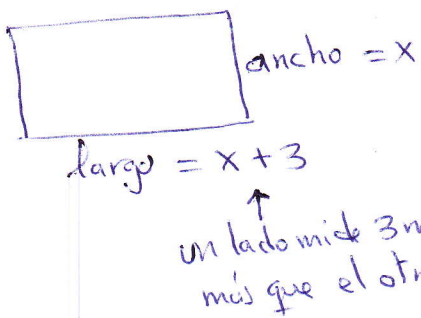 ancho = x
largo = x + 3
un lado mide 3
más que el